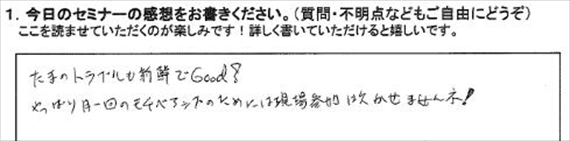 1. 今日のセミナーの感想をお書きください。(質問・不明点などもご自由にどうぞ)
ここを読ませていただくのが楽しみです！詳しく書いていただけると嬉しいです。
たまのトラブルも新鮮でGood?
やっぱり月一回のモチベアップのためには現場参加は欠かせませんネ!